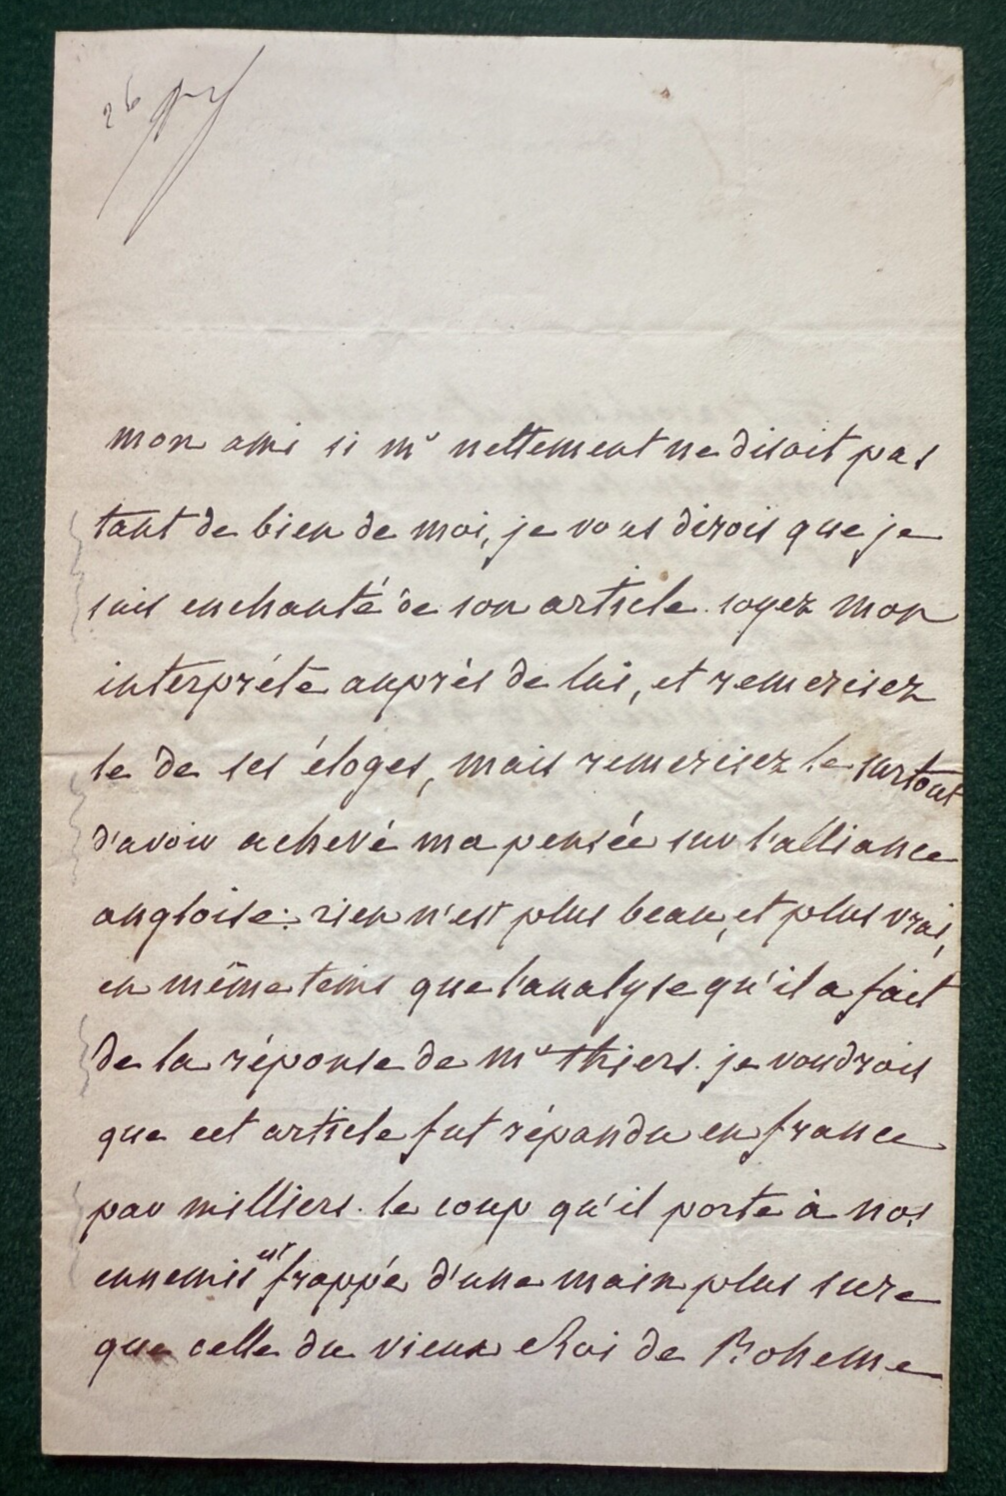 26
mon ami si mr nettement ne disoit pas
tant de bien de moi, je vous dirois que je
suis enchanté de son article. soyez mon
interpréte auprès de lui, et remerciez
le de ses éloges, mais remerciez le surtout
d'avoir achevé ma pensée sur l'alliance
angloise: rien n'est plus beau, et plus vrai,
en même tems que l'analyse qu'il a fait
de la réponse de mr thiers. je voudrois
que cet article fut répandu en france
par milliers. le coup qu'il porte à nos
ennemis est frappé d'une main plus sure
que celle du vieux Roi de Boheme